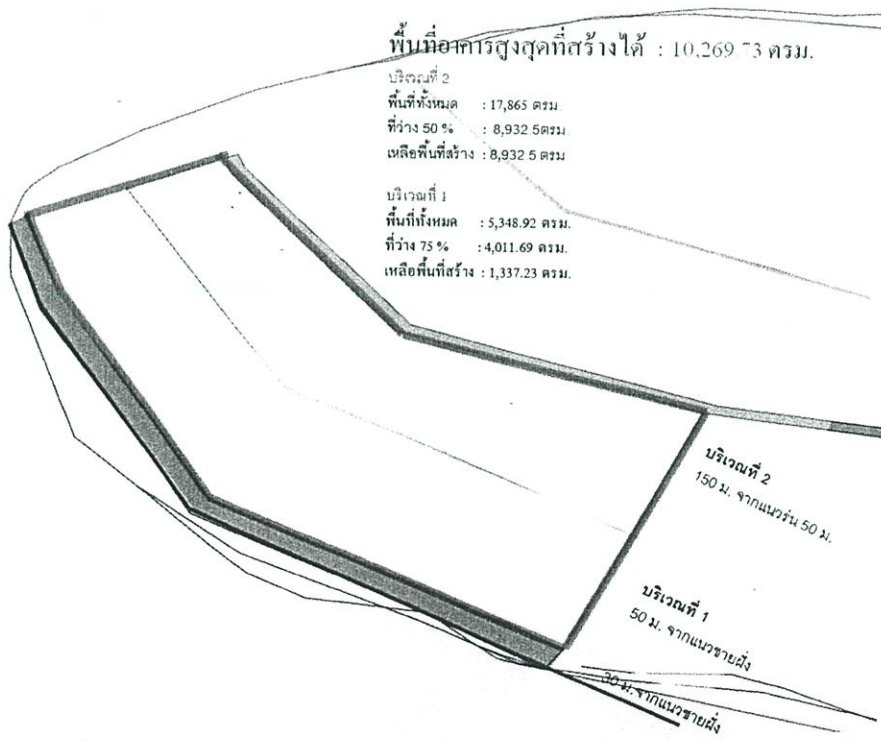 พื้นที่อาคารสูงสุดที่สร้างได้ : 10,269.73 ตรม.
บริเวณที่ 2
พื้นที่ทั้งหมด : 17,865 ตรม.
ที่ว่าง 50 % : 8,932.5ตรม.
เหลือพื้นที่สร้าง : 8,932.5 ตรม
บริเวณที่ 1
พื้นที่ทั้งหมด : 5,348.92 ตรม.
ที่ว่าง 75 % : 4,011.69 ตรม.
เหลือพื้นที่สร้าง : 1,337.23 ตรม.
บริเวณที่ 2
150 ม. จากแนวร่น 50 ม.
บริเวณที่ 1
50 ม. จากแนวชายฝั่ง
30 ม.จากแนวชายฝั่ง